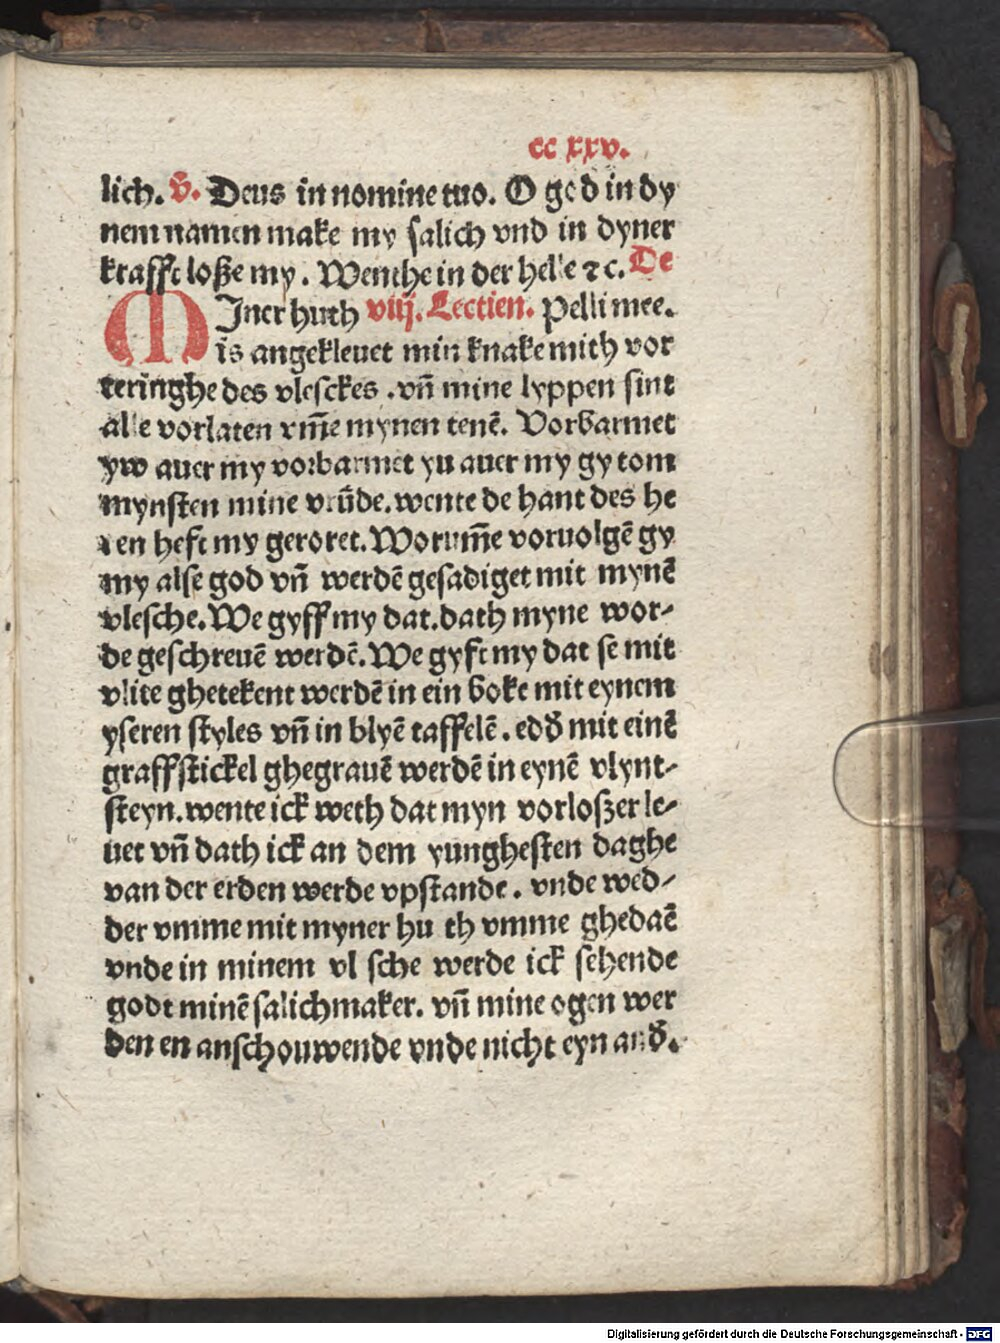 cc xxv.
lich. v̄. Deus in nomine tuo. O god in dy
nem namen make my salich vnd in dyner
krafft loße my. Wenthe in der helle ⁊ c. De
MIner huth viij. Lectien. Pelli mee.
is angekleuet min knake mith vor
teringhe des vlesckes .vn̄ mine lyppen sint
alle vorlaten vm̄e mynen tenē. Vorbarmet
yw auer my vorbarmet yu auer my gy tom
mynsten mine vrūde.wente de hant des he
ren heft my geroret.Worum̄e voruolgē gy
my alse god vn̄ werdē gesadiget mit mynē
vlesche.We gyff my dat.dath myne wor-
de geschreuē werdē.We gyft my dat se mit
vlite ghetekent werdē in ein boke mit eynem
yseren styles vn̄ in blyē taffelē. edð mit einē
graffstickel ghegrauē werdē in eynē vlynt-
steyn.wente ick weth dat myn vorloszer le-
uet vn̄ dath ick an dem yunghesten daghe
van der erden werde vpstande. vnde wed-
der vmme mit myner hu th vmme ghedaē
vnde in minem vl sche werde ick sehende
godt minē salichmaker. vn̄ mine ogen wer
den en anschouwende vnde nicht eyn anð.
Digitalisierung gefördert durch die Deutsche Forschungsgemeinschaft - DFG